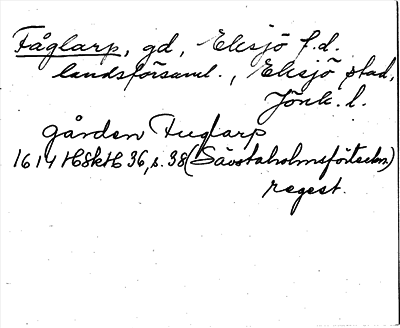 Fåglarp, gd, Eksjö f.d.
landsförsaml., Eksjö stad,
Jönk. l.
gården Fuglarp
1614 HSkH 36, s. 38 (SäVstaholmsförteckn)
regest.